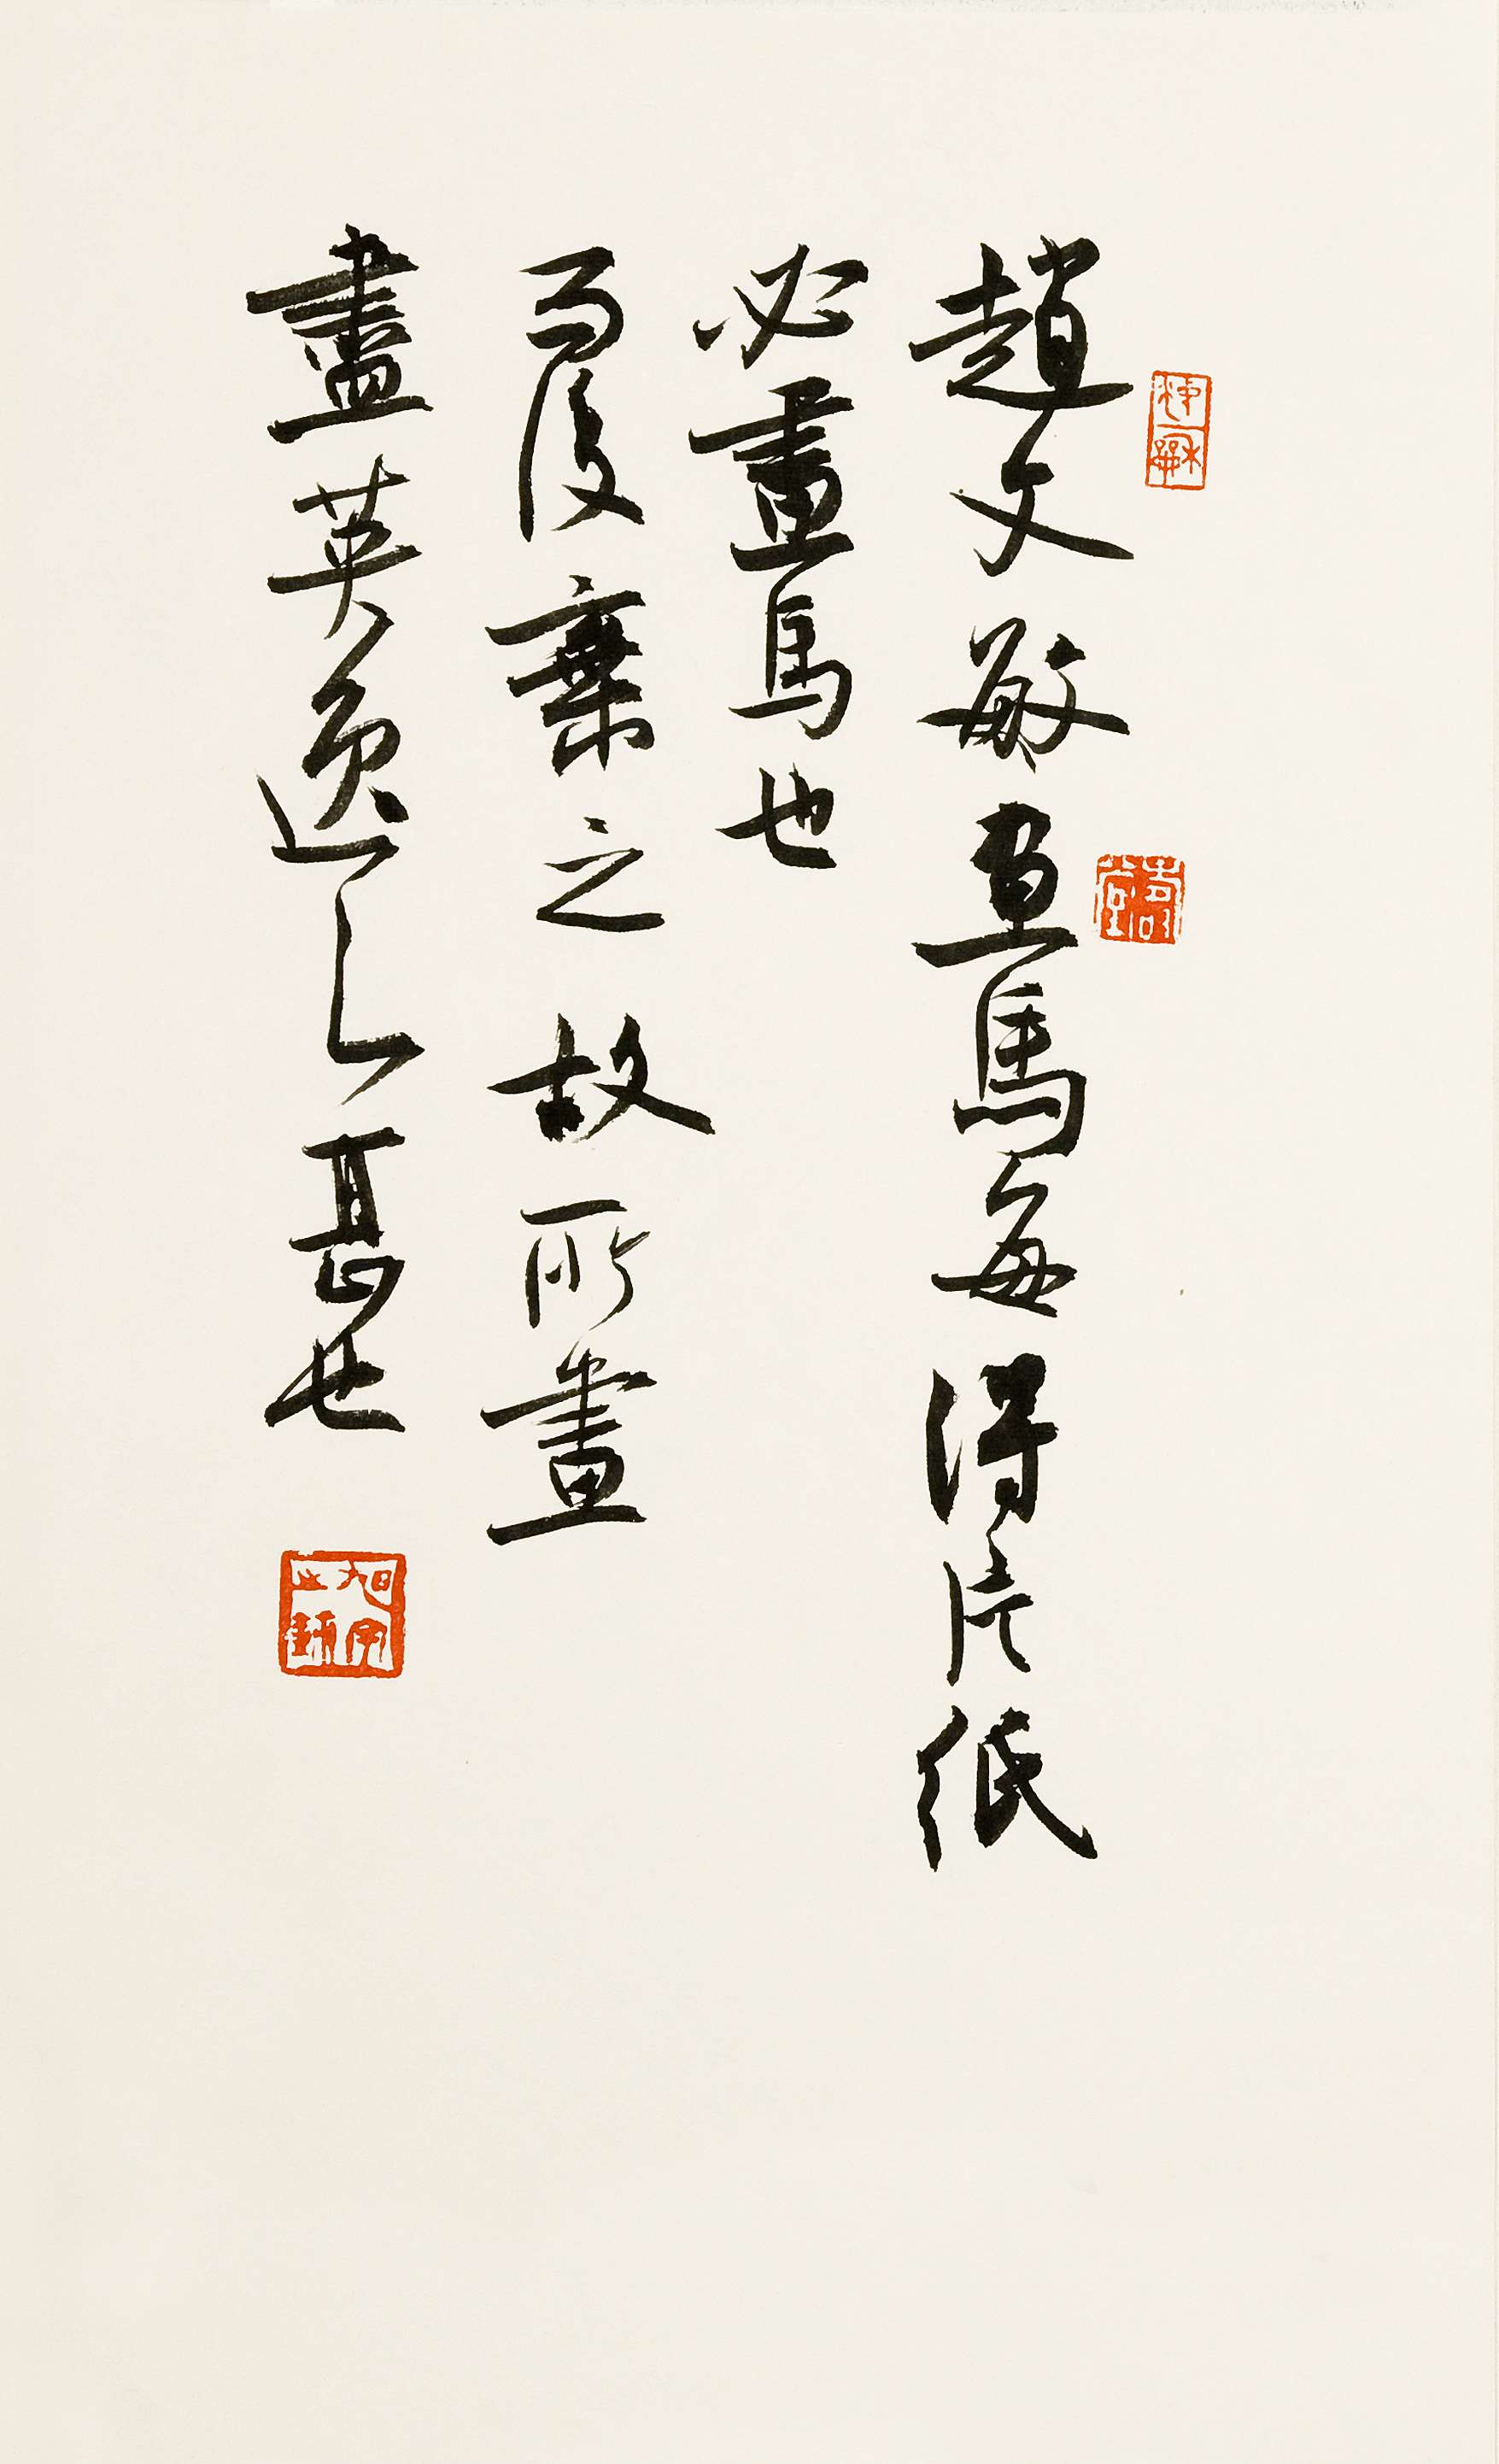 趙文敏畫馬每得片紙
必畫馬也
而後棄之故所畫
盡英逸之甚也